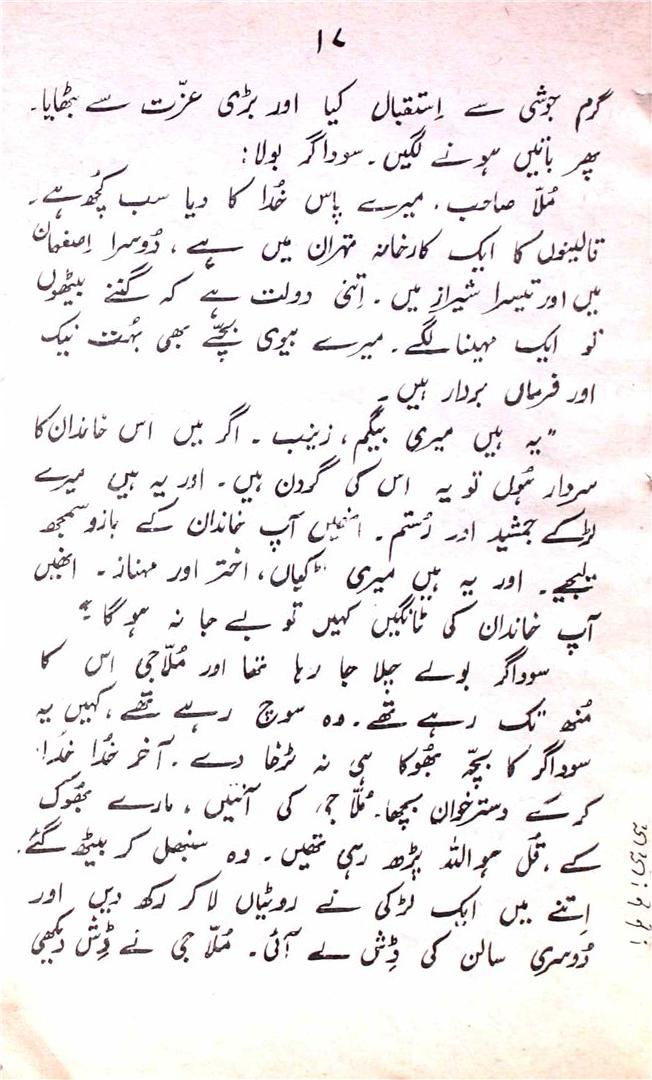 ۱۷
گرم جوشی سے اِستقبال کیا اور بڑی عزّت سے بٹھایا۔
پھر باتیں ہونے لگیں۔ سوداگر بولا:
مُلّا صاحب، میرے پاس خُدا کا دیا سب کچُھ ہے۔
قالینوں کا ایک کارخانہ تہران میں ہے، دُوسرا اِصفہان
میں اور تیسرا شیراز میں۔ اِتنی دولت ہے کہ گننے بیٹھوں
تو ایک مہینا لگے۔ میرے بیوی بچّے بھی بہُت نیک
اور فرماں بردار ہیں۔
”یہ ہیں میری بیگم، زینب۔ اگر میں اس خاندان کا
سردار ہُوں تو یہ اس کی گردن ہیں۔ اور یہ ہیں میرے
لڑکے جمشید اور رُستم۔ انھیں آپ خاندان کے بازو سمجھ
لیجیے۔ اور یہ ہیں میری لڑکیاں، اختر اور مہناز۔ انھیں
آپ خاندان کی ٹانگیں کہیں تو بے جا نہ ہو گا۔“
سوداگر بولے چلا جا رہا تھا اور مُلّا جی اس کا
مُنھ تک رہے تھے۔ وہ سوچ رہے تھے، کہیں یہ
سوداگر کا بچّہ بھُوکا ہی نہ ٹرخا دے۔ آخر خُدا خُدا
کر کے دسترخوان بچھا۔ مُلّا جی کی آنتیں، مارے بھُوک
کے، قُل ھو اللہ پڑھ رہی تھیں۔ وہ سنبھل کر بیٹھ گئے۔
اِتنے میں ایک لڑکی نے روٹیاں لا کر رکھ دیں اور
دُوسری سالن کی ڈِش لے آئی۔ مُلّا جی نے ڈِش دیکھی